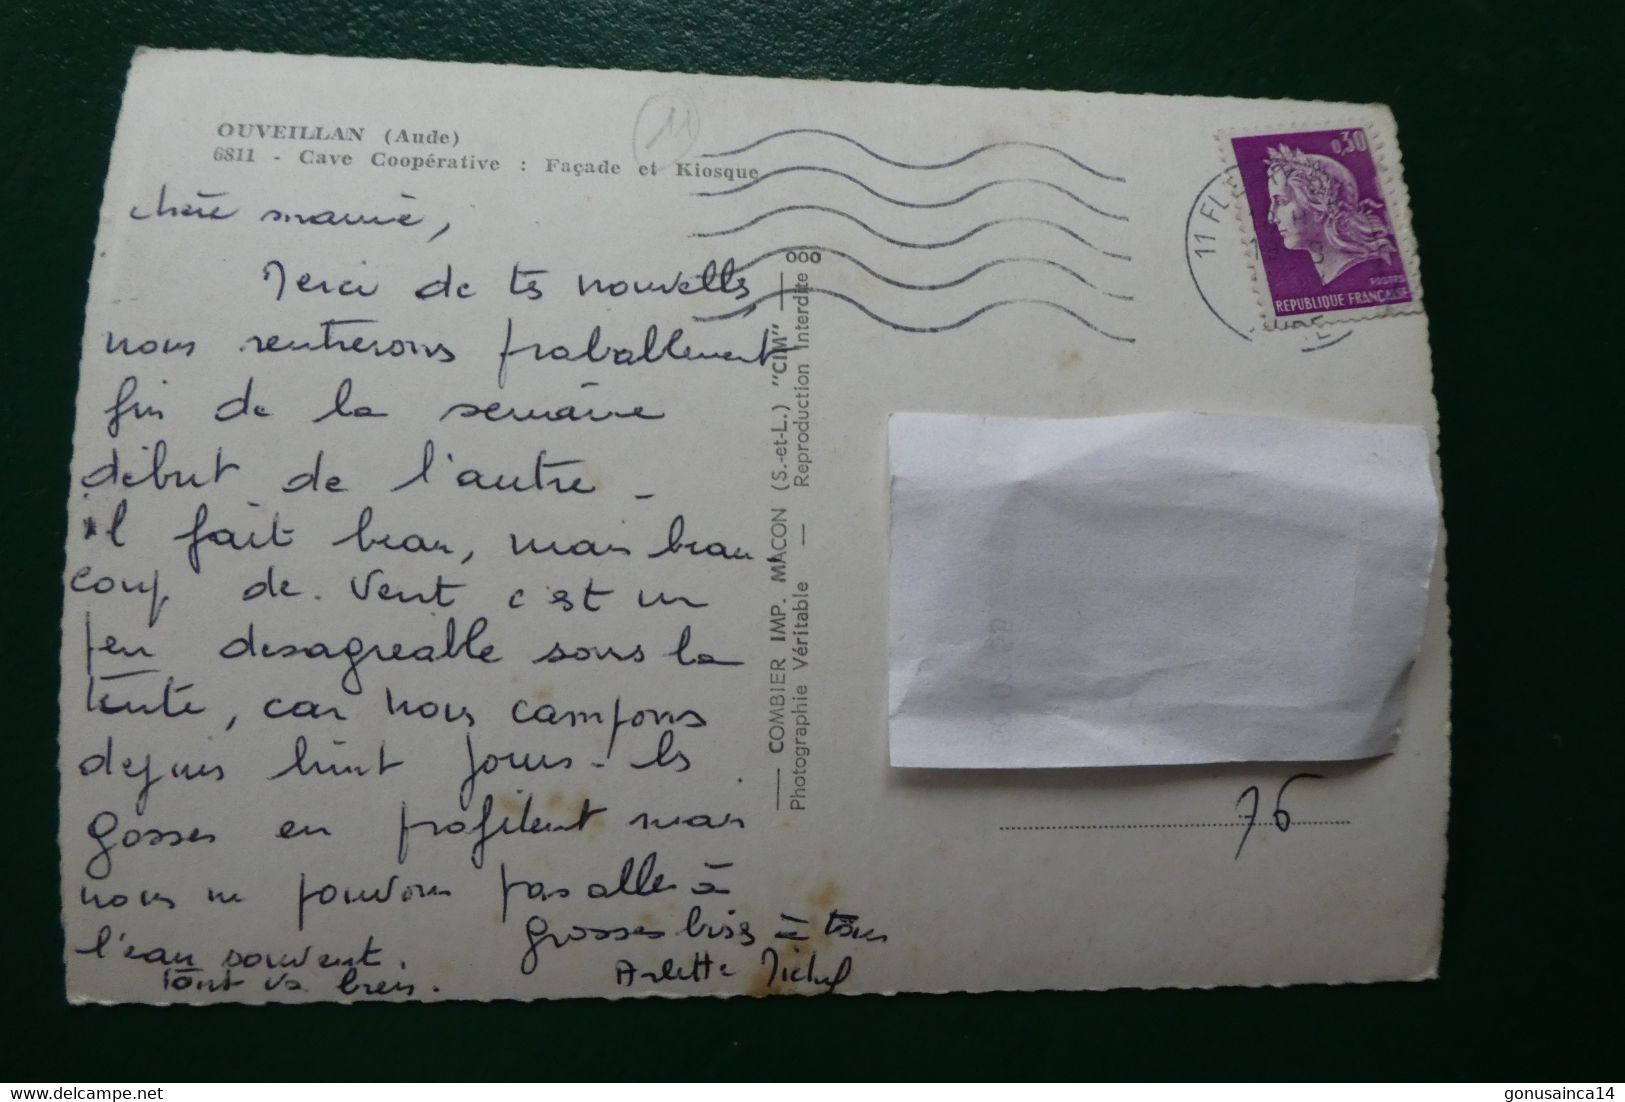 OUVEILLAN (Aude)
6811 - Cave Coopérative : Façade et Kiosque
11
chère mamie,
Merci de tes nouvelles,
nous rentrerons probablement
fin de la semaine
début de l'autre -
il fait beau, mais beau
coup de vent c'est un
peu desagreable sous la
tente, car nous campons
depuis huit jours - les
gosses en profitent mais
nous ne pouvons pas aller à
l'eau souvent.
tout va bien.
grosses bises à tous
Arlette Michel
COMBIER IMP. MACON (S.-et-L.) "CIM"
Photographie Véritable — Reproduction Interdite
11 FLE
0,30
POSTES
REPUBLIQUE FRANÇAISE
76
delcampe.net
gonusainca14